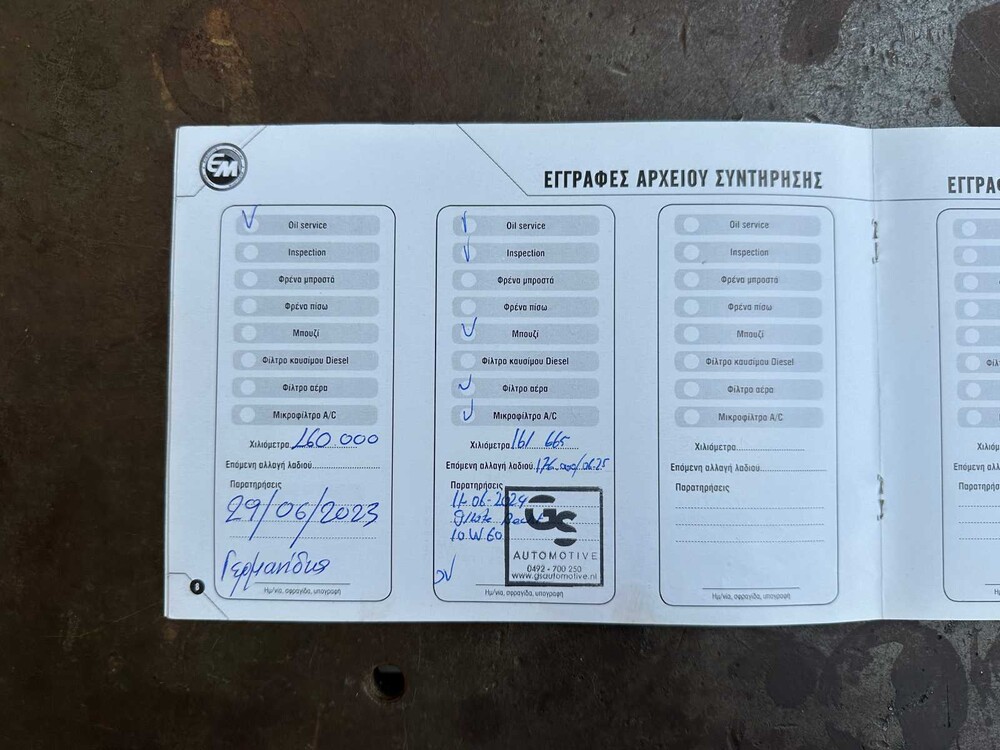 EM
ΕΓΓΡΑΦΕΣ ΑΡΧΕΙΟΥ ΣΥΝΤΗΡΗΣΗΣ
Oil service
Inspection
Φρένα μπροστά
Φρένα πίσω
Μπουζί
Φίλτρο καυσίμου Diesel
Φίλτρο αέρα
Μικροφίλτρο A/C
Χιλιόμετρα 160 000
Επόμενη αλλαγή λαδιού
Παρατηρήσεις
29/06/2023
Ημ/νια, σφραγίδα, υπογραφή
8
Oil service
Inspection
Φρένα μπροστά
Φρένα πίσω
Μπουζί
Φίλτρο καυσίμου Diesel
Φίλτρο αέρα
Μικροφίλτρο A/C
Χιλιόμετρα 161 665
Επόμενη αλλαγή λαδιού 176.000/06-25
Παρατηρήσεις
11-06-2024
10.W.60
GS
AUTOMOTIVE
0492 - 700 250
www.gsautomotive.nl
Ημ/νια, σφραγίδα, υπογραφή
Oil service
Inspection
Φρένα μπροστά
Φρένα πίσω
Μπουζί
Φίλτρο καυσίμου Diesel
Φίλτρο αέρα
Μικροφίλτρο A/C
Χιλιόμετρα
Επόμενη αλλαγή λαδιού
Παρατηρήσεις
Ημ/νια, σφραγίδα, υπογραφή
ΕΓΓΡΑ